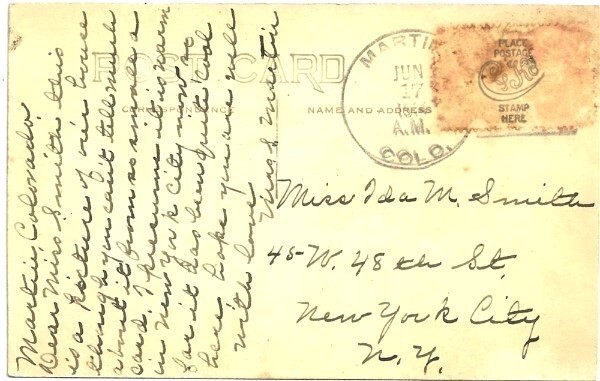 POST CARD
CORRESPONDENCE
NAME AND ADDRESS
MARTIN
JUN
17
A.M.
COLO.
PLACE
POSTAGE
STAMP
HERE
Martin Colorado
Dear Miss Smith this
is a picture of our house
though you can't tell much
about it from so small a
card. I presume it is warm
in New York City now so
far it has been quite cool
here. Hope you are well
with love
Miss Ida M. Smith
45-W. 48th St.
New York City
N.Y.